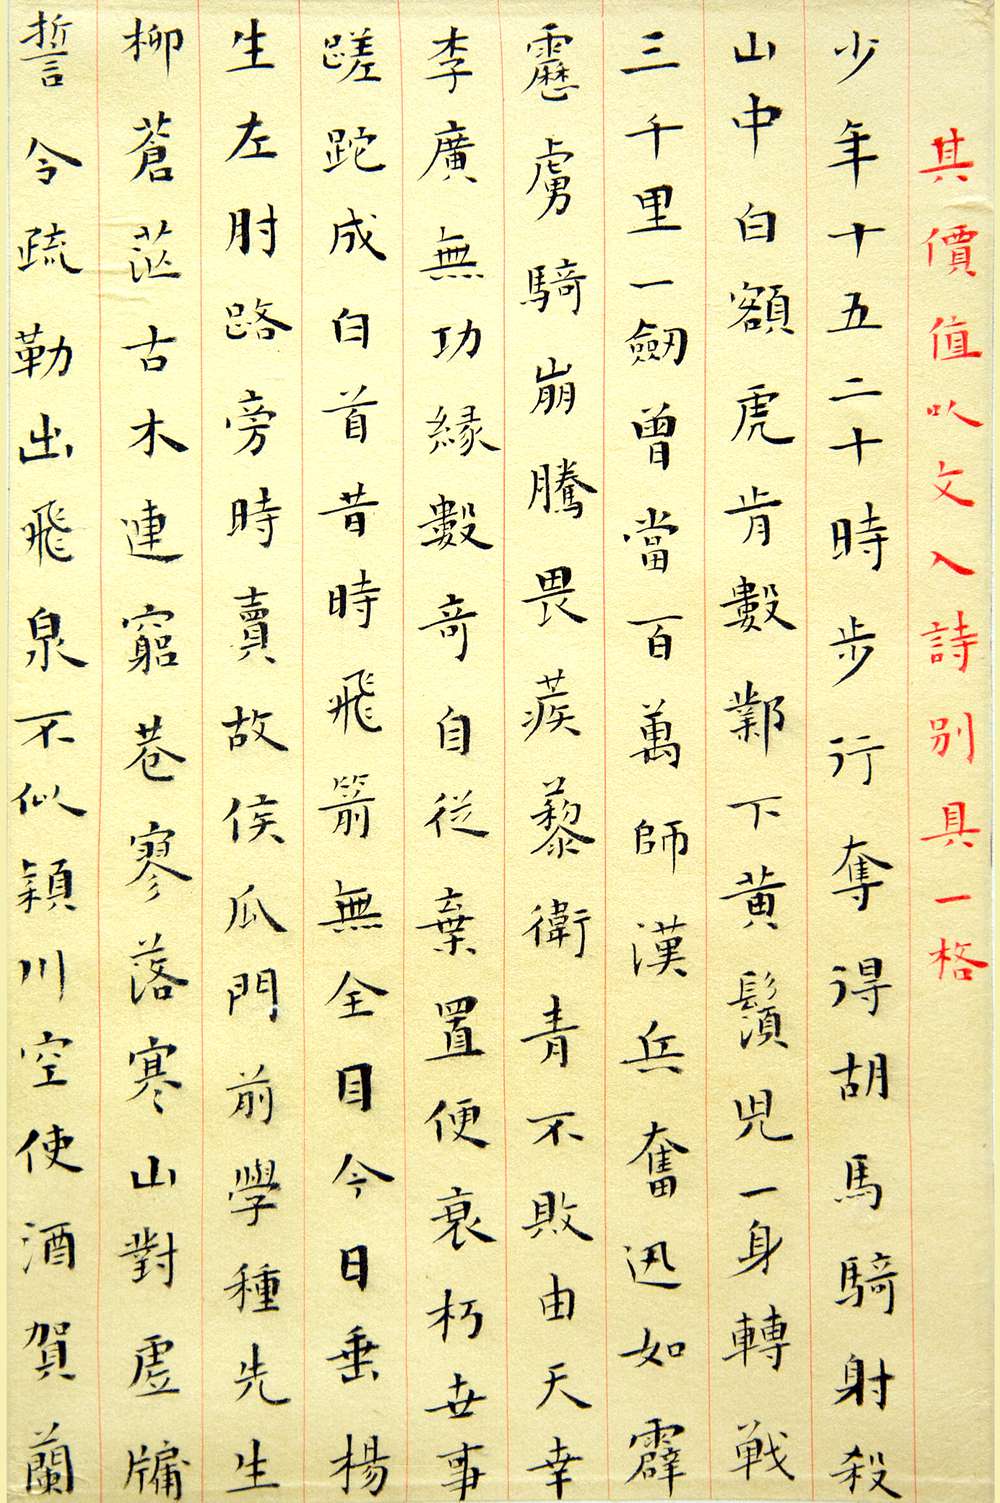 其價值以文入詩別具一格
少年十五二十時步行奪得胡馬騎射殺
山中白額虎肯數鄴下黃鬚兒一身轉戰
三千里一劒曾當百萬師漢兵奮迅如霹
靂虜騎崩騰畏蒺藜衛青不敗由天幸
李廣無功緣數奇自從棄置便衰朽世事
蹉跎成白首昔時飛箭無全目今日垂楊
生左肘路旁時賣故侯瓜門前學種先生
柳蒼茫古木連窮巷寥落寒山對虛牖
誓令疏勒出飛泉不似潁川空使酒賀蘭